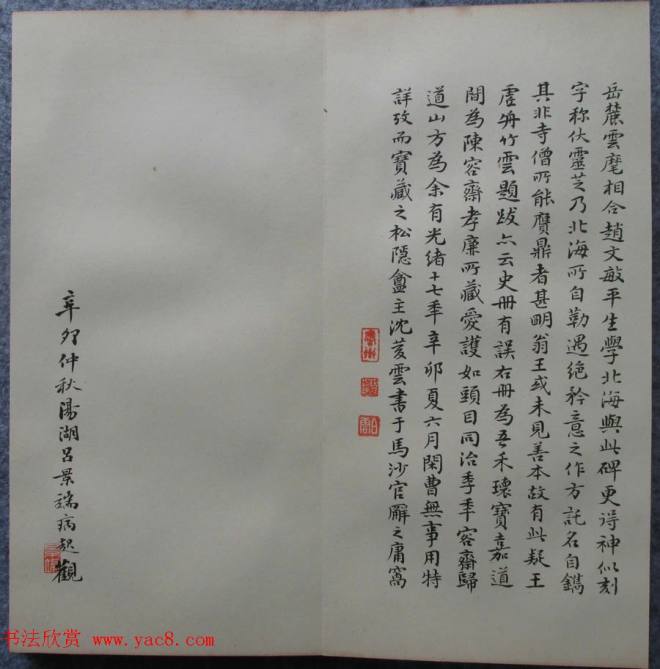 岳麓雲麾相合趙文敏平生學北海與此碑更得神似刻
字称伏靈芝乃北海所自勒遇絶矜意之作方託名自鐫
其非寺僧所能贋鼎者甚明翁王或未見善本故有此疑王
虚舟竹雲題跋亦云史冊有誤右冊為吾禾瓌寶嘉道
間為陳容齋孝廉所藏愛護如頭目同治季年容齋歸
道山方為余有光緒十七年辛卯夏六月閑曹無事用特
詳攷而寶藏之松隱盦主沈菱雲書于馬沙官廨之庸窩
辛卯仲秋湯湖呂景端病起觀
书法欣赏 www.yac8.com